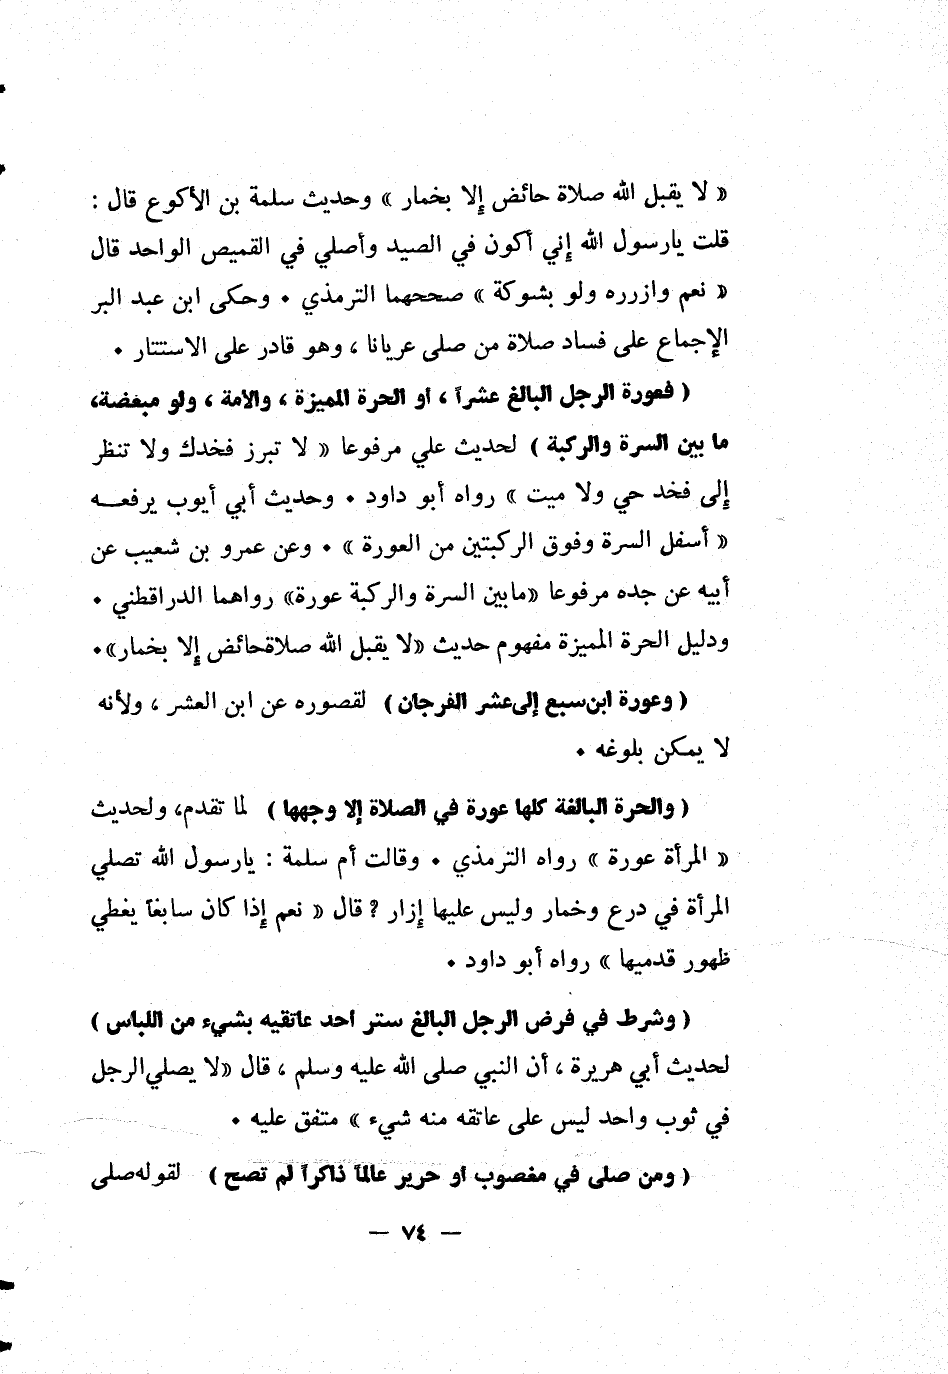 « لا يقبل الله صلاة حائض إلا بخمار » وحديث سلمة بن الأكوع قال :
قلت يارسول الله إني أكون في الصيد وأصلي في القميص الواحد قال
« نعم وازرره ولو بشوكة » صححهما الترمذي . وحكى ابن عبد البر
الإجماع على فساد صلاة من صلى عريانا ، وهو قادر على الاستتار .
( فعورة الرجل البالغ عشراً ، او الحرة المميزة ، والامة ، ولو مبعضة،
ما بين السرة والركبة ) لحديث علي مرفوعا « لا تبرز فخدك ولا تنظر
إلى فخد حي ولا ميت » رواه أبو داود . وحديث أبي أيوب يرفعـــه
« أسفل السرة وفوق الركبتين من العورة » . وعن عمرو بن شعيب عن
أبيه عن جده مرفوعا «مابين السرة والركبة عورة» رواهما الدراقطني .
ودليل الحرة المميزة مفهوم حديث «لا يقبل الله صلاةحائض إلا بخمار».
( وعورة ابن سبع إلى عشر الفرجان ) لقصوره عن ابن العشر ، ولأنه
لا يمكن بلوغه .
( والحرة البالغة كلها عورة في الصلاة إلا وجهها ) لما تقدم، ولحديث
« المرأة عورة » رواه الترمذي . وقالت أم سلمة : يارسول الله تصلي
المرأة في درع وخمار وليس عليها إزار ? قال « نعم إذا كان سابغاً يغطي
ظهور قدميها » رواه أبو داود .
( وشرط في فرض الرجل البالغ ستر احد عاتقيه بشيء من اللباس )
لحديث أبي هريرة ، أن النبي صلى الله عليه وسلم ، قال «لا يصلي الرجل
في ثوب واحد ليس على عاتقه منه شيء » متفق عليه .
( ومن صلى في مغصوب او حرير عالماً ذاكراً لم تصح ) لقوله صلى
— ٧٤ —